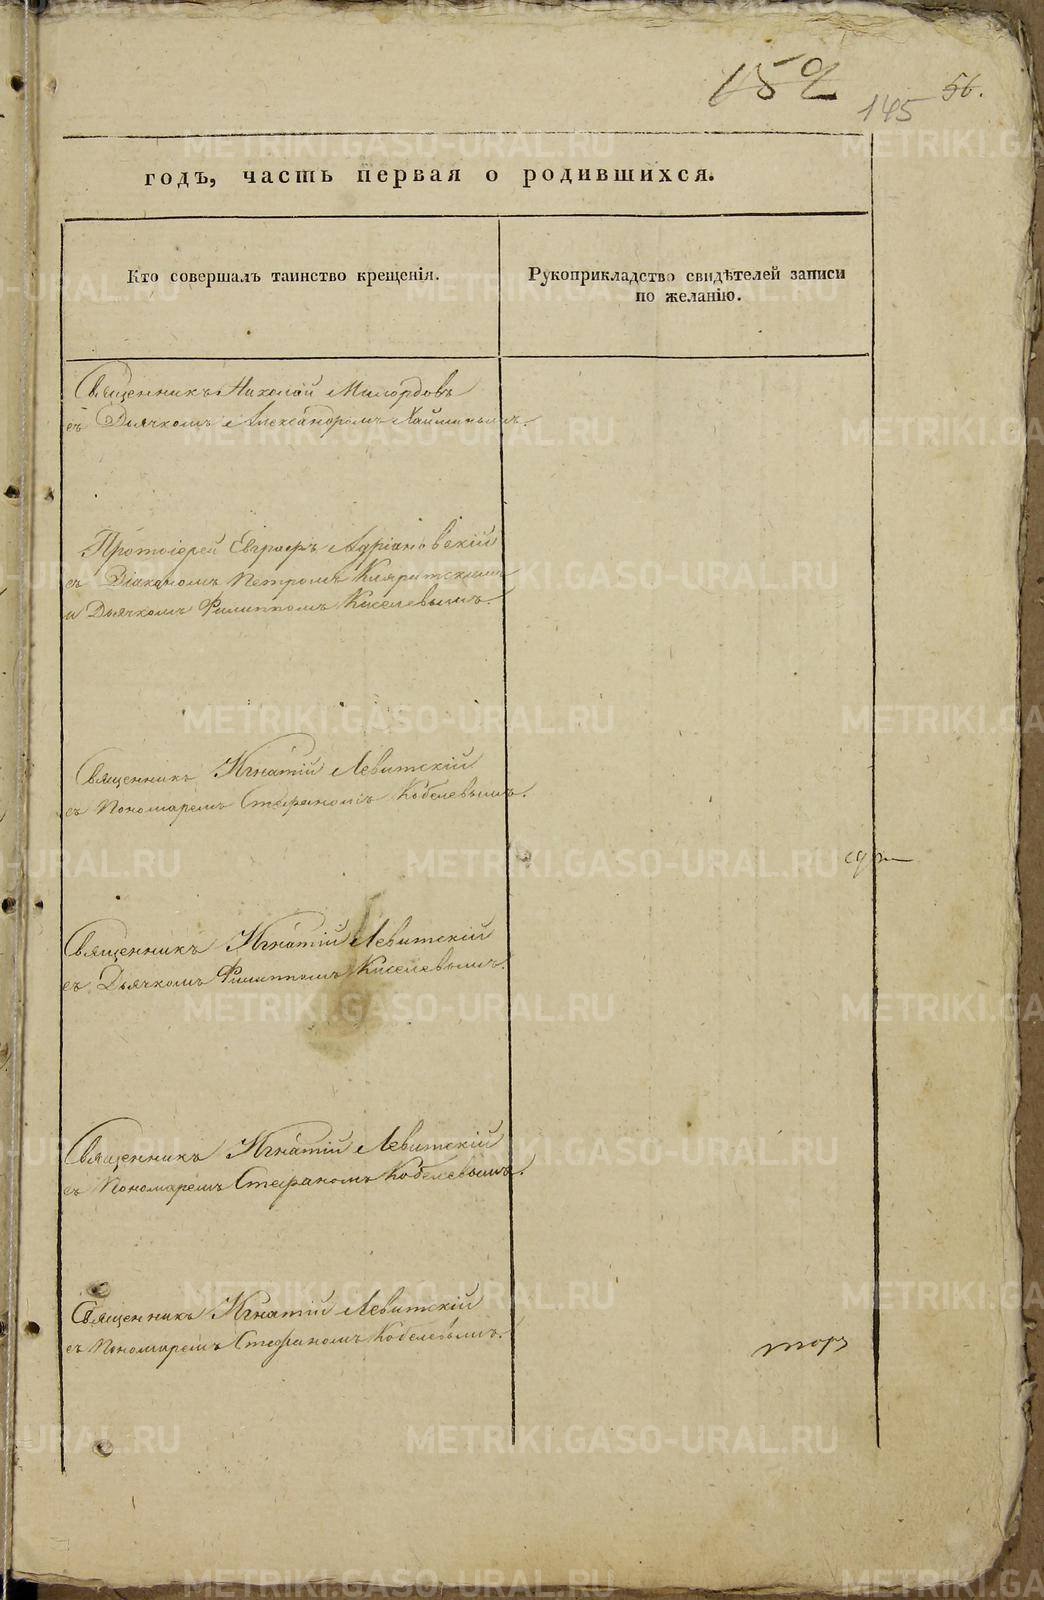 152
145
56.
годъ, часть первая о родившихся.
Кто совершалъ таинство крещенія.
Рукоприкладство свидѣтелей записи
по желанію.
Священникъ Николай Милордовъ
съ Дьячкомъ Александромъ
Протоіерей Евграфъ Адріановскій
съ Діакономъ Петромъ
и Дьячкомъ Филиппомъ Киселевымъ.
Священникъ Игнатій Левитскій
съ Пономаремъ Стефаномъ Кобелевымъ.
Священникъ Игнатій Левитскій
съ Дьячкомъ Филиппомъ Киселевымъ.
Священникъ Игнатій Левитскій
съ Пономаремъ Стефаномъ Кобелевымъ.
Священникъ Игнатій Левитскій
съ Пономаремъ Стефаномъ Кобелевымъ.
METRIKI.GASO-URAL.RU